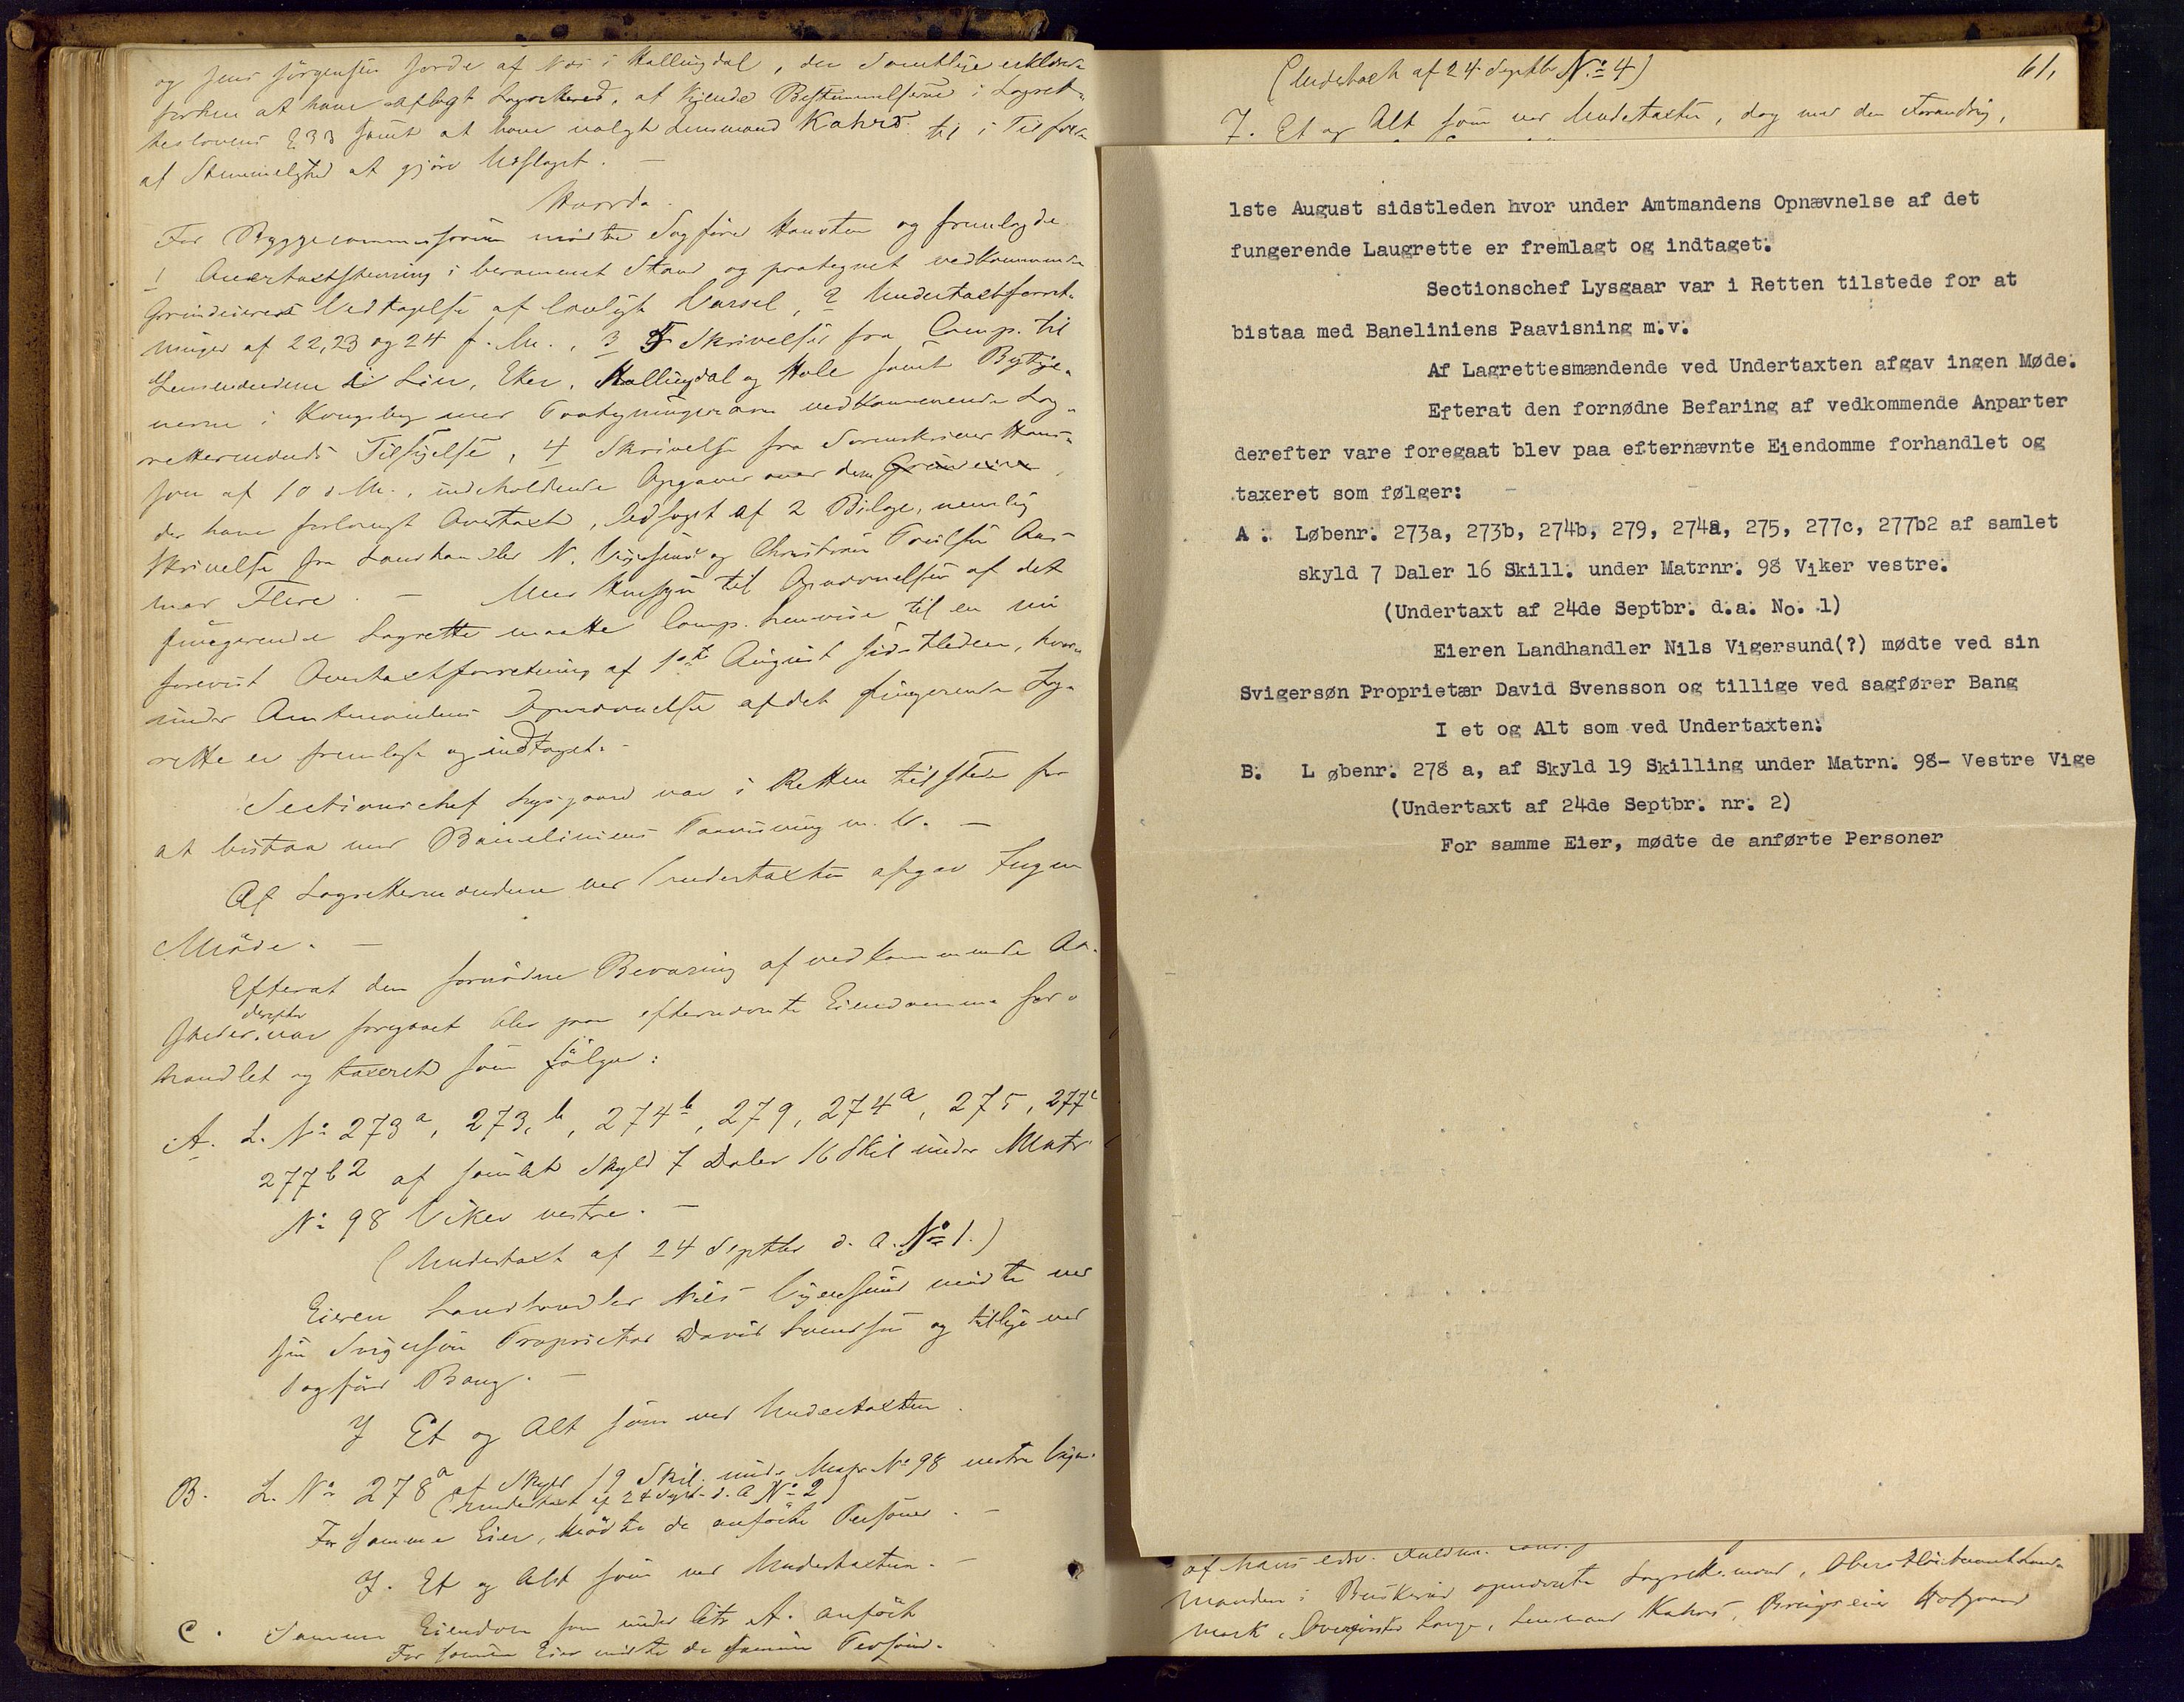 og Jens Jörgensen Jorde af Næs i Hallingdal, der Samtlige erklærede
forhen at have aflagt Lagretteed, at kjende Bestemmelserne i Lagret-
teslovens § 33 samt at have valgt Lensmand Kahrs til i Tilfælde
af Stemmelighed at gjöre Udslaget. —
Hvorda
For Byggecommissionen mödte Sagförer Hansten og fremlagde
1 Overtaxtstevning i berammet Stand og paategnet vedkommende
Grundeieres Vedtagelse af lovligt Varsel, 2 Undertaxtforret-
ninger af 22, 23 og 24 f. M., 3 5 Skrivelser fra Comp. til
Lensmændene i Lier, Eker, Hallingdal og Hole samt Bytje-
nerne i Kongsberg med Paategninger om vedkommende Lag-
rettemænds Tilsigelse, 4 Skrivelse fra Sorenskriver Han-
sen af 10 d. M., indeholdende Opgaver over dem Grundeiere,
der have forlangt Overtaxt, ledsaget af 2 Bilage, nemlig
Skrivelse fra Landhandler N. Vigersund og Christian Poulsen Aas-
mar Flere. — Med Hensyn til Opnævnelsen af det
fungerende Lagrette maatte Comp. henvise til en nu
forevist Overtaxtforretning af 1ste August sidstleden, hvor
under Amtmandens Opnævnelse af det fungerende Lag-
rette er fremlagt og indtaget. —
Sectionschef Lysgaard var i Retten tilstede for
at bistaa med Baneliniens Paavisning m. V. —
Af Lagrettemændene ved Undertaxten afgav Ingen
Möde. —
Efterat den fornödne Bevaring af vedkommende An-
parter derefter var foregaaet blev paa efternævnte Eiendomme for-
handlet og taxeret som fölger:
A. L. No 273a, 273,b, 274b, 279, 274a, 275, 277c
277b2 af samlet Skyld 7 Daler 16 Skil under Matr
No 98 Viker vestre. —
(Undertaxt af 24 Septbr d. A. No 1.)
Eieren Landhandler Nils Vigersund mödte ved
sin Svigersön Proprietær David Svensen og tillige ved
Sagförer Bang. —
I Et og Alt som ved Undertaxten.
B. L. No 278a af Skyld 19 Skil. under Matr No 98 vestre Vige.
(Undertaxt af 24 Sept. d. A No 2)
For samme Eier, mödte de anförte Personer. —
I. Et og Alt som ved Undertaxten. —
C. Samme Eiendom som under litr A. anfört
For samme Eier mödte de samme Personer.
(Undertaxt af 24 Septbr No 4)
61,
I. Et og Alt som ved Undertaxten, dog med den Forandring,
1ste August sidstleden hvor under Amtmandens Opnævnelse af det
fungerende Laugrette er fremlagt og indtaget.
Sectionschef Lysgaar var i Retten tilstede for at
bistaa med Baneliniens Paavisning m.v.
Af Lagrettesmændende ved Undertaxten afgav ingen Møde.
Efterat den fornødne Befaring af vedkommende Anparter
derefter vare foregaat blev paa efternævnte Eiendomme forhandlet og
taxeret som følger:
A. Løbenr. 273a, 273b, 274b, 279, 274a, 275, 277c, 277b2 af samlet
skyld 7 Daler 16 Skill. under Matrnr. 98 Viker vestre.
(Undertaxt af 24de Septbr. d.a. No. 1)
Eieren Landhandler Nils Vigersund(?) mødte ved sin
Svigersøn Proprietær David Svensson og tillige ved sagfører Bang
I et og Alt som ved Undertaxten.
B. L øbenr. 278 a, af Skyld 19 Skilling under Matrn. 98- Vestre Vige
(Undertaxt af 24de Septbr. nr. 2)
For samme Eier, mødte de anførte Personer
af Hans
manden i Buskerud opnævnte Lagrettemænd, Oberstlöitnant
mark, Overförster Lange, Lensmand Kahrs, Brugseier Hofgaard